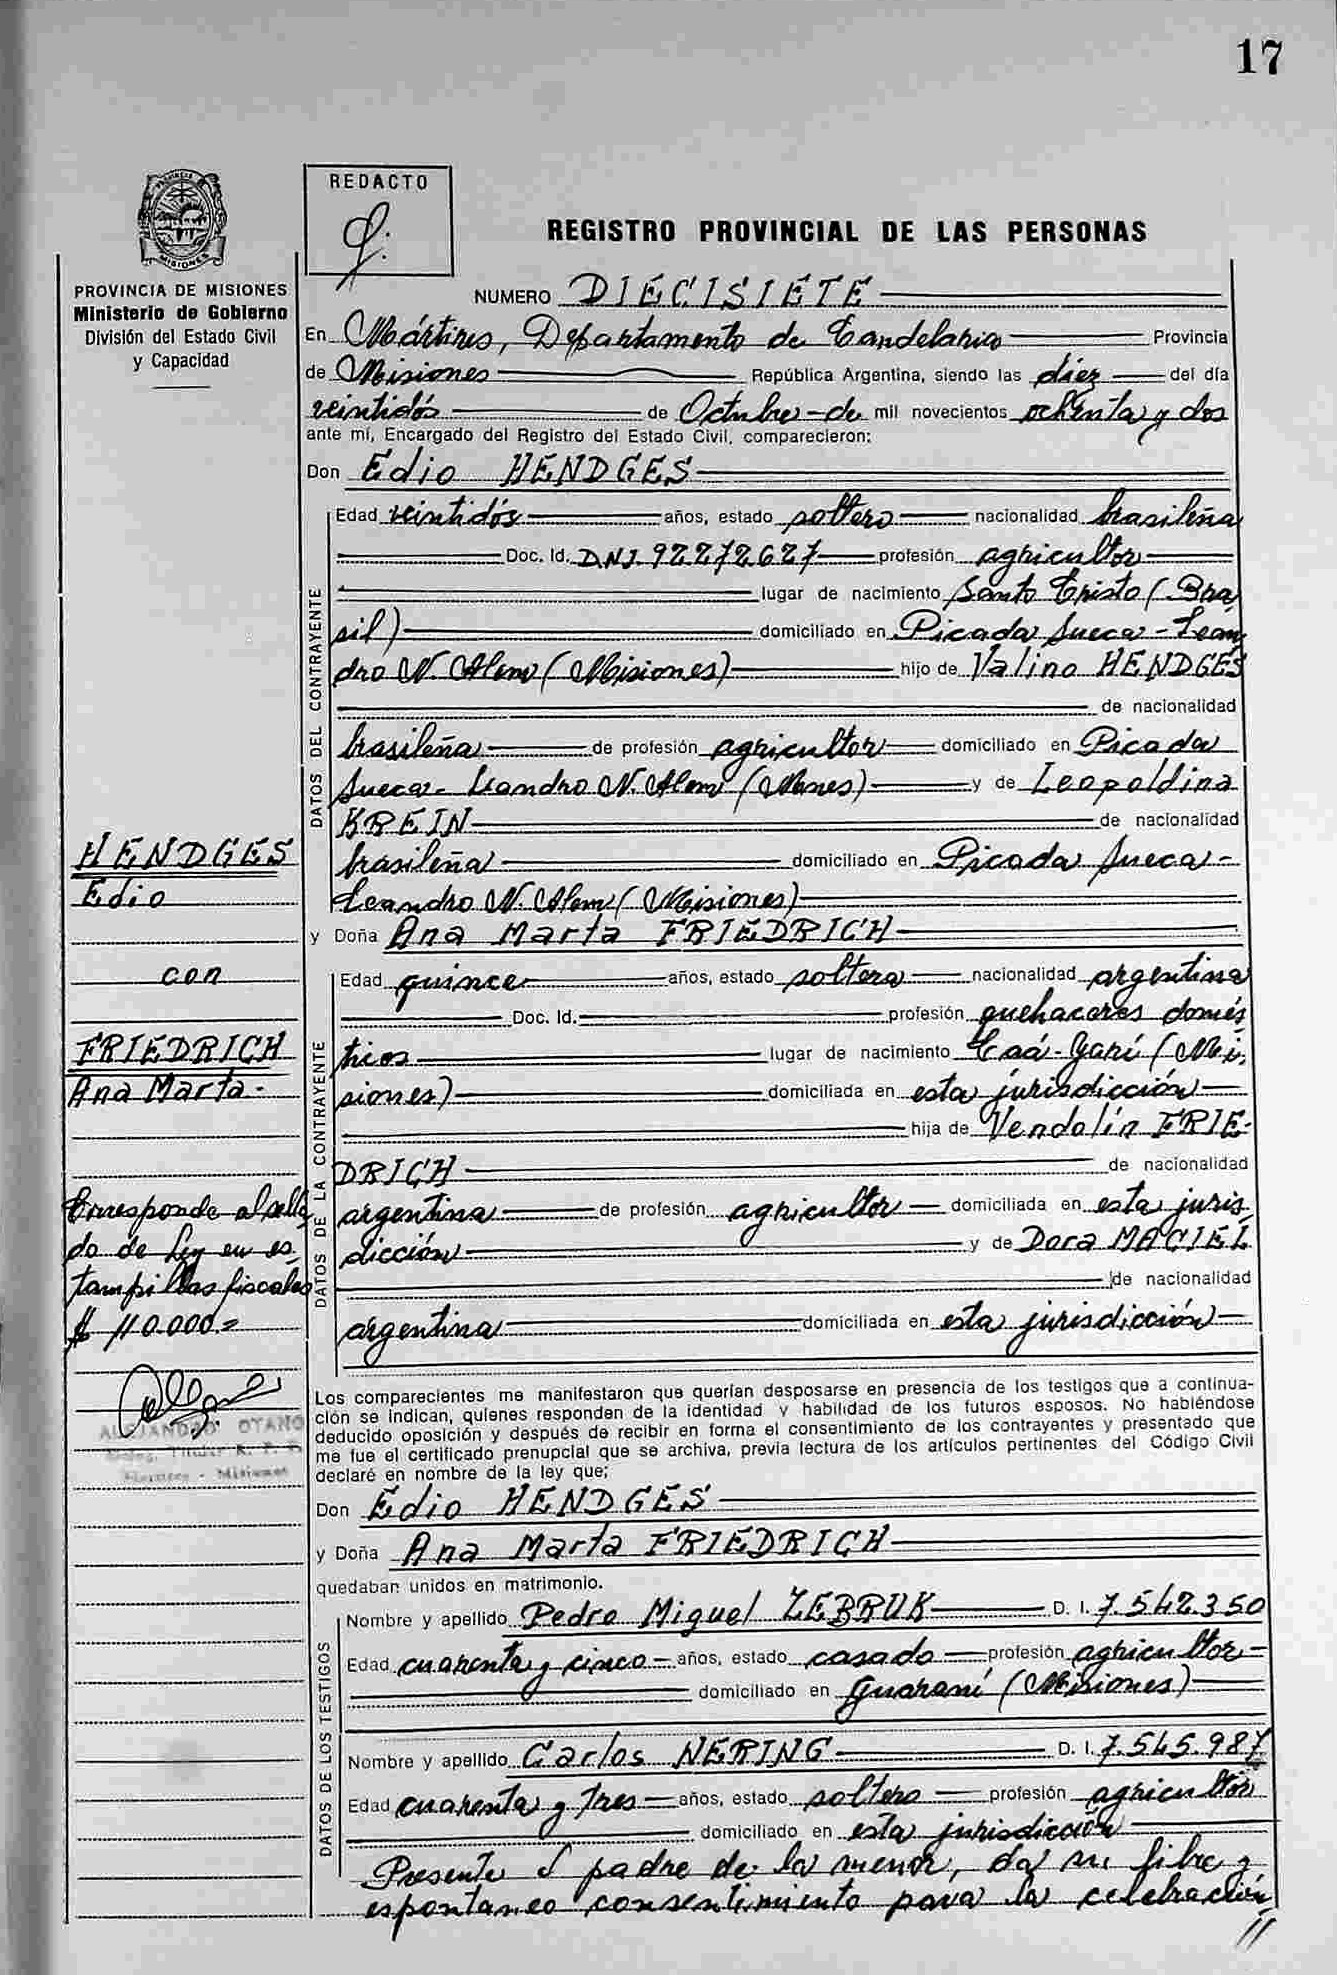 17
REDACTO
REGISTRO PROVINCIAL DE LAS PERSONAS
PROVINCIA DE MISIONES
Ministerio de Gobierno
División del Estado Civil
y Capacidad
NUMERO DIECISIETE
En Mártires, Departamento de Candelaria Provincia
de Misiones República Argentina, siendo las diez del día
veintidós de Octubre de mil novecientos ochenta y dos
ante mí, Encargado del Registro del Estado Civil, comparecieron:
Don Edio HENDGES
DATOS DEL CONTRAYENTE
Edad veintidós años, estado soltero nacionalidad brasileña
Doc. Id. D.N.I. 92272627 profesión agricultor
lugar de nacimiento Santo Cristo (Bra
sil) domiciliado en Picada Sueca - Lean
dro N. Alem (Misiones) hijo de Valino HENDGES
de nacionalidad
brasileña de profesión agricultor domiciliado en Picada
Sueca - Leandro N. Alem (Mnes) y de Leopoldina
KREIN de nacionalidad
brasileña domiciliado en Picada Sueca -
Leandro N. Alem (Misiones)
y Doña Ana Marta FRIEDRICH
DATOS DE LA CONTRAYENTE
Edad quince años, estado soltera nacionalidad argentina
Doc. Id. profesión quehaceres domés
ticos lugar de nacimiento Caá-Yarí (Mi
siones) domiciliada en esta jurisdicción
hija de Vendolín FRIE-
DRICH de nacionalidad
argentina de profesión agricultor domiciliada en esta juris
dicción y de Dora MACIEL
de nacionalidad
argentina domiciliada en esta jurisdicción
HENDGES
Edio
con
FRIEDRICH
Ana Marta.-
Corresponde al sella
do de Ley en es
tampillas fiscales
$ 110.000.=
ALEJANDRO OTAÑO
Los comparecientes me manifestaron que querían desposarse en presencia de los testigos que a continua-
ción se indican, quienes responden de la identidad y habilidad de los futuros esposos. No habiéndose
deducido oposición y después de recibir en forma el consentimiento de los contrayentes y presentado que
me fue el certificado prenupcial que se archiva, previa lectura de los artículos pertinentes del Código Civil
declaré en nombre de la ley que:
Don Edio HENDGES
y Doña Ana Marta FRIEDRICH
quedaban unidos en matrimonio.
DATOS DE LOS TESTIGOS
Nombre y apellido Pedro Miguel ZEBRUK D. I. 7.542.350
Edad cuarenta y cinco años, estado casado profesión agricultor
domiciliado en Guaraní (Misiones)
Nombre y apellido Carlos NERING D. I. 7.545.987
Edad cuarenta y tres años, estado soltero profesión agricultor
domiciliado en esta jurisdicción
Presente el padre de la menor, da su libre y
espontaneo consentimiento para la celebración
//